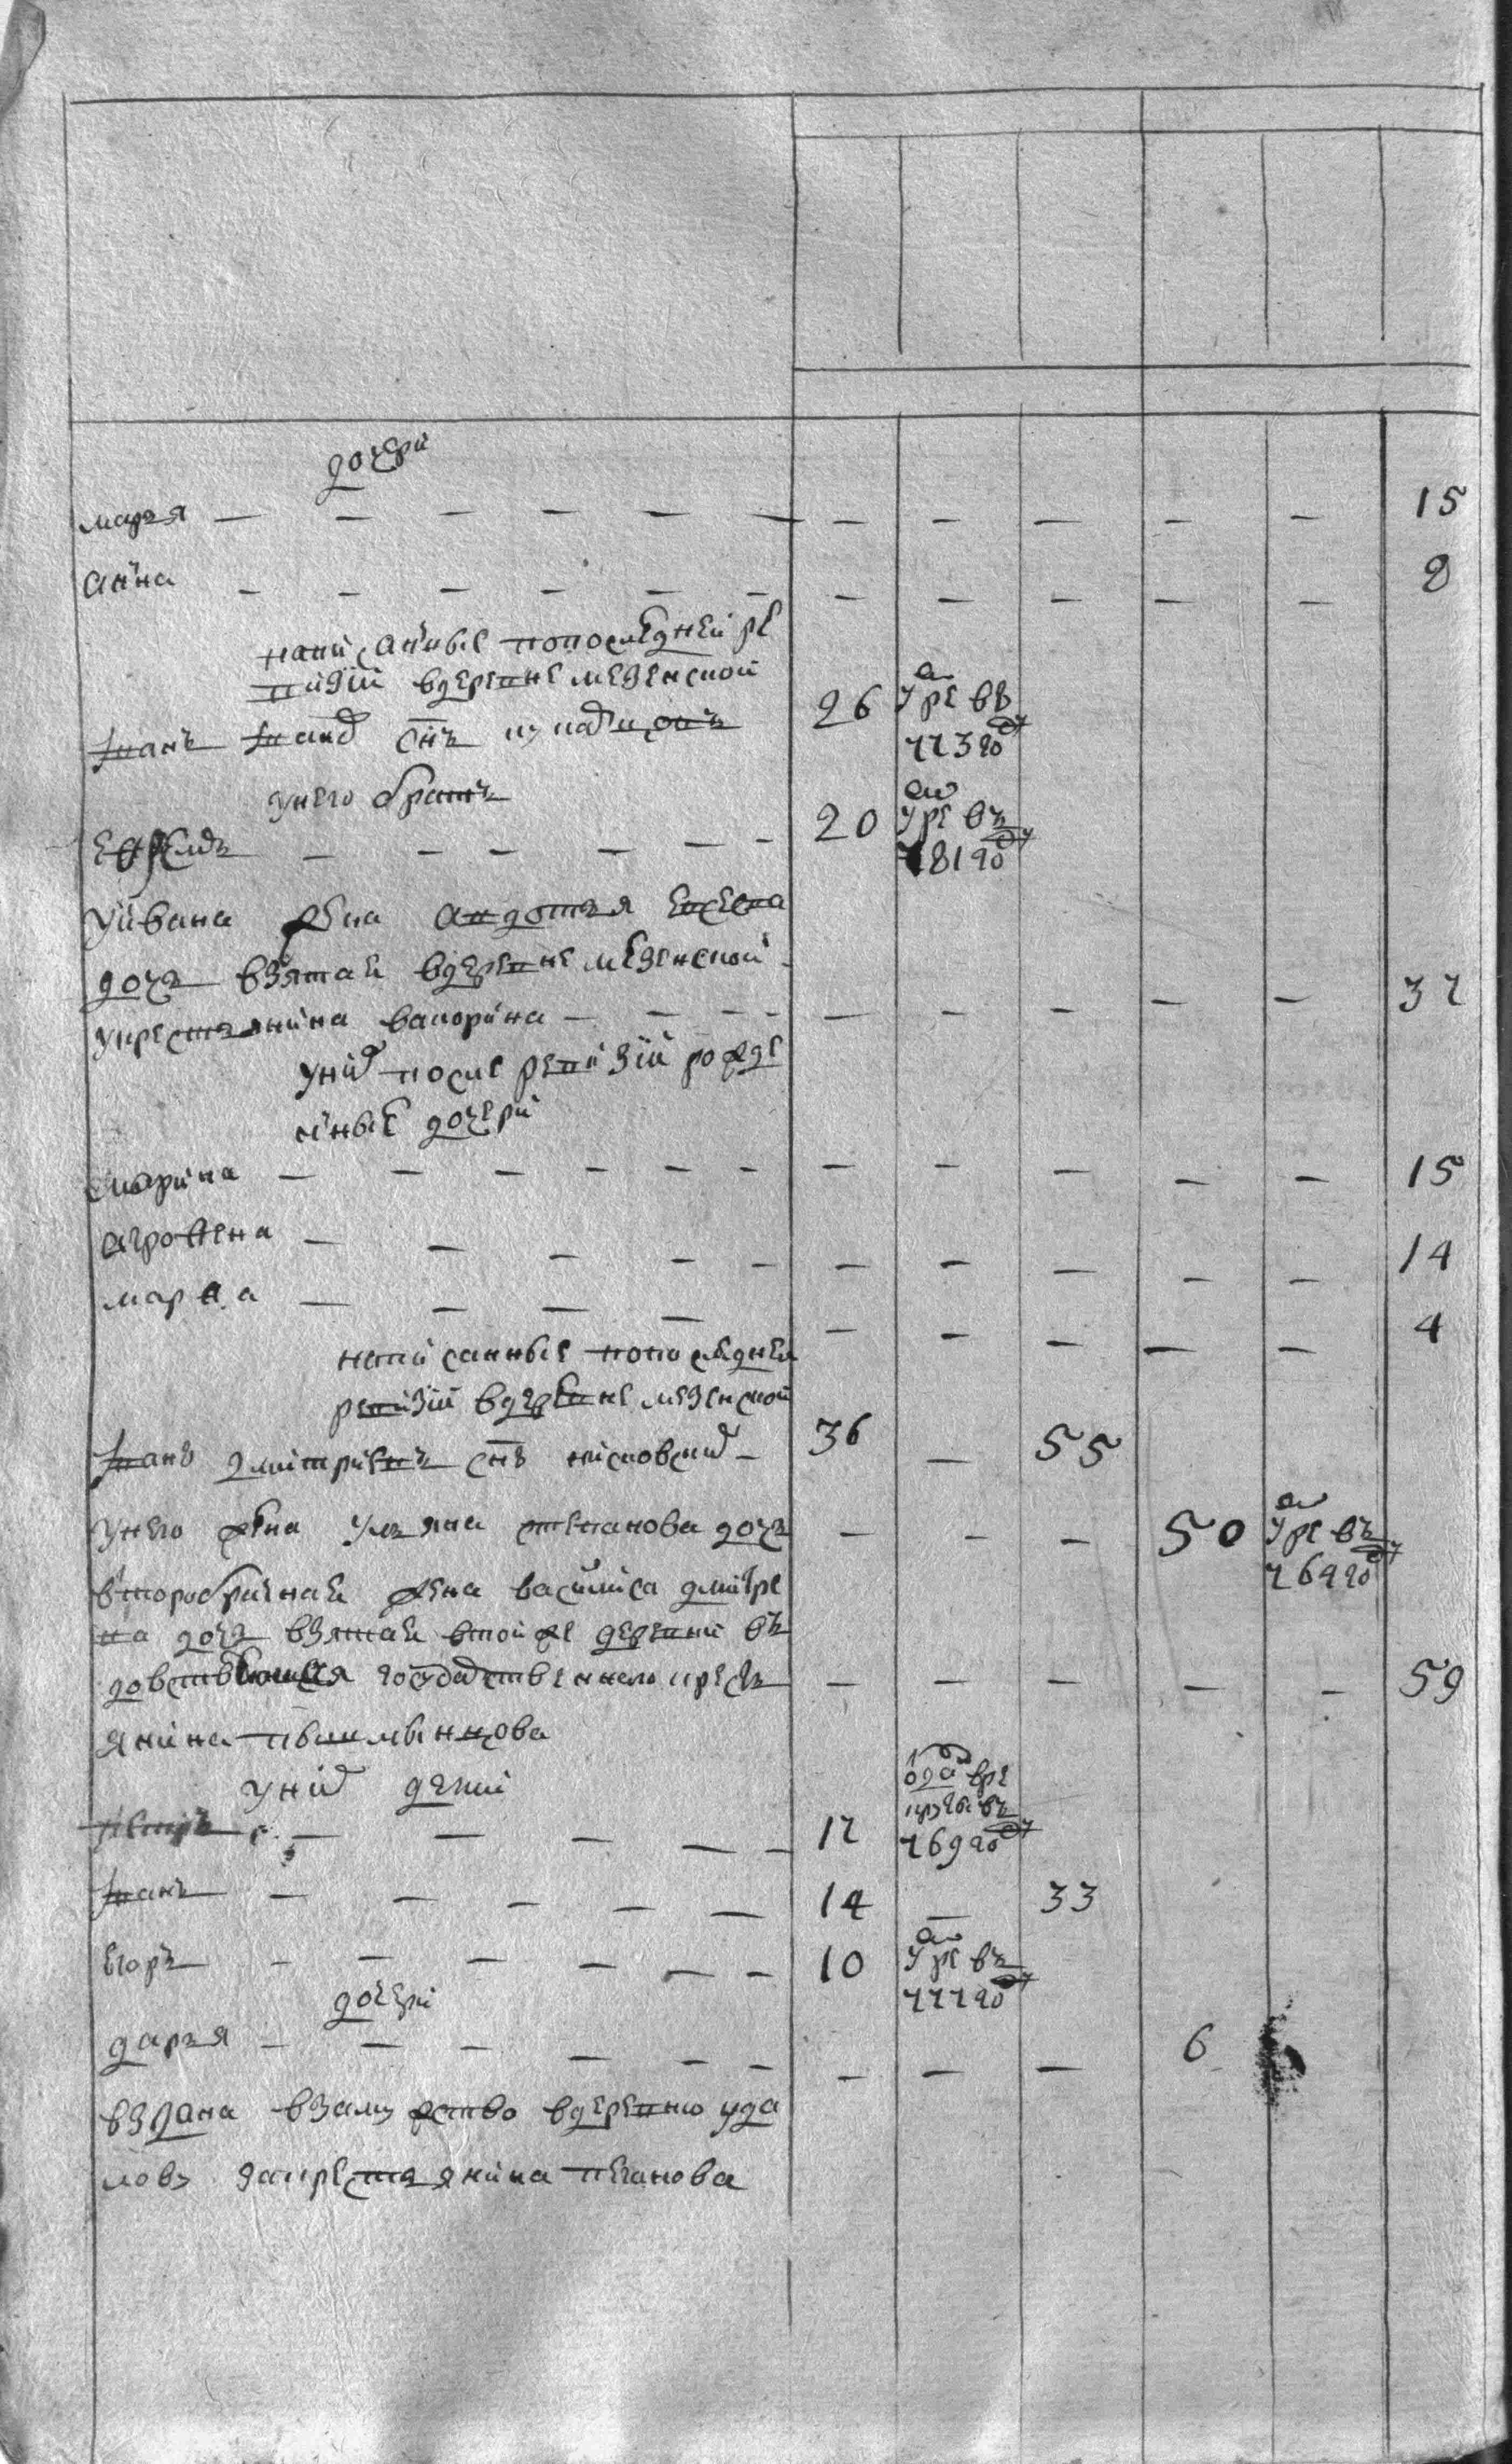 дочери
марья — — — — — — — — — — — 15
анна — — — — — — — — — — — 8
написанные попоследней ре
визии вдеревне мезенской
Иванъ Иванов снъ 26 умре въ
773 году
унего братъ
20 умре въ
781 году
уивана жена авдотья евсеева
дочь взятая вдеревне мезенской
укрестьянина вахорина — — — — — — — — 37
уних после ревизии рожде
нные дочери
марина — — — — — — — — — — — 15
агрофена — — — — — — — — — — 14
марфа — — — — — — — — — 4
написанные попоследней
ревизии вдеревне мезенской
Иванъ дмитриевъ снъ кисловских — 36 — 55
унего жена ульяна степанова дочь — — — 50 умре въ
769 году
второбрачная жена василиса дмитре
ва дочь взятая втойже деревни въ
довствующая государственнаго кресть — — — — — 59
янина
уних дети
петръ — — — — — 17 отдан врекруты въ
769 году
Иванъ — — — — — 14 — 33
егоръ — — — — — — 10 умре въ
777 году
дочери
дарья — — — — — — — — — 6
выдана взамужство вдеревню уда
лову закрестьянина пеганова